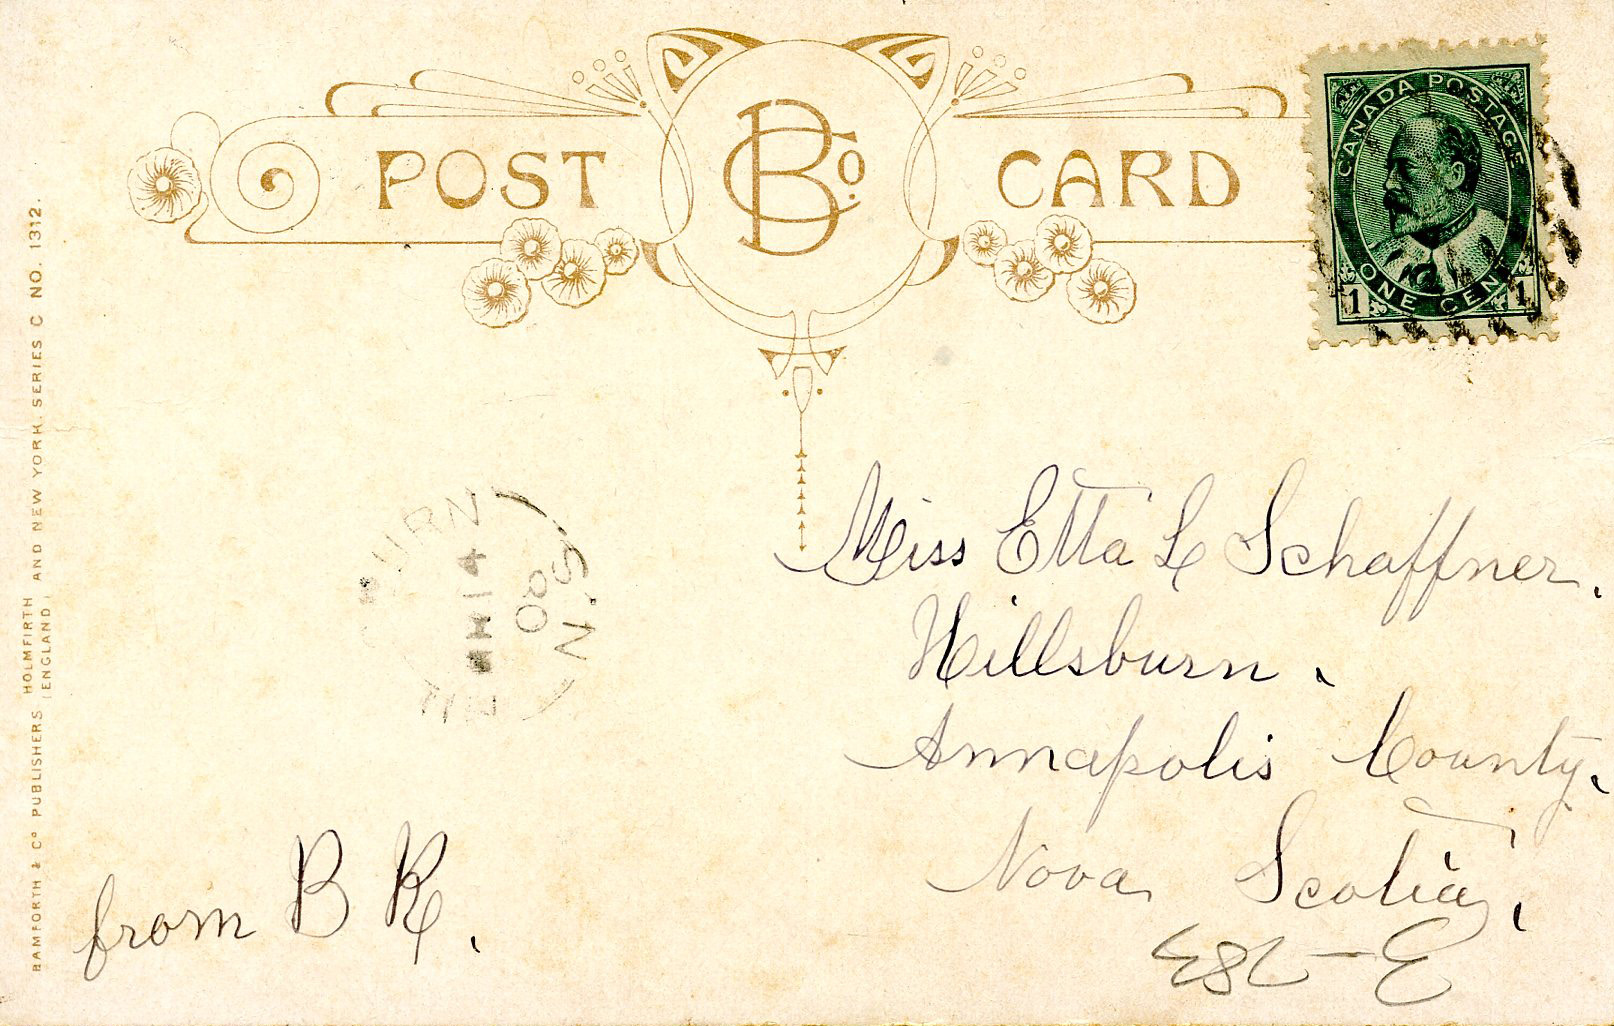 POST CARD
B Co.
CANADA POSTAGE
ONE CENT
1 1
BAMFORTH & Co PUBLISHERS HOLMFIRTH (ENGLAND) AND NEW YORK. SERIES C NO. 1312.
BURN
14
N.S.
Miss Etta L Schaffner.
Hillsburn.
Annapolis County.
Nova Scotia.
from B R.